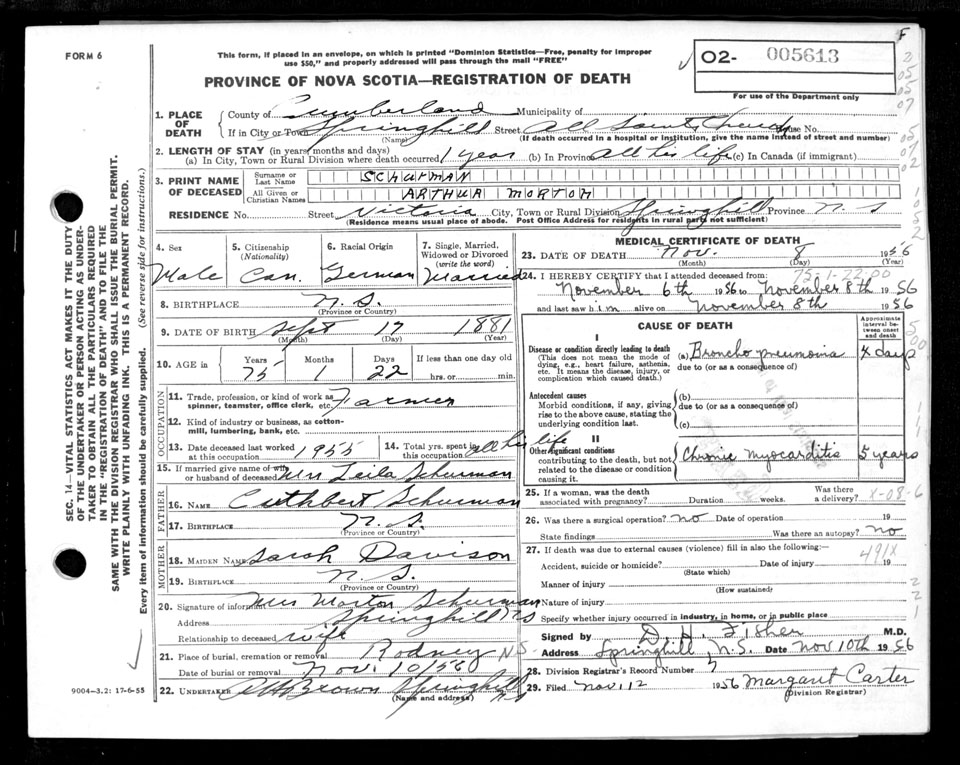 FORM 6
This form, if placed in an envelope, on which is printed "Dominion Statistics—Free, penalty for improper
use $50," and properly addressed will pass through the mail "FREE"
02- 005613
For use of the Department only
PROVINCE OF NOVA SCOTIA—REGISTRATION OF DEATH
1. PLACE OF DEATH
County of Cumberland Municipality of
If in City or Town Springhill Street All Saints House No.
(Name) (If death occurred in a hospital or institution, give the name instead of street and number)
2. LENGTH OF STAY (in years, months and days)
(a) In City, Town or Rural Division where death occurred 1 year (b) In Province All his life (c) In Canada (if immigrant)
3. PRINT NAME OF DECEASED
Surname or Last Name SCHURMAN
All Given or Christian Names ARTHUR MORTON
RESIDENCE No. Street Victoria City, Town or Rural Division Springhill Province N.S
(Residence means usual place of abode. Post Office Address for residents in rural parts not sufficient)
4. Sex Male
5. Citizenship (Nationality) Can.
6. Racial Origin German
7. Single, Married, Widowed or Divorced (write the word) Married
8. BIRTHPLACE N.S.
(Province or Country)
9. DATE OF BIRTH Sept 17 1881
(Month) (Day) (Year)
10. AGE in Years 75 Months 1 Days 22 If less than one day old hrs. or min.
OCCUPATION
11. Trade, profession, or kind of work as spinner, teamster, office clerk, etc. Farmer
12. Kind of industry or business, as cotton-mill, lumbering, bank, etc.
13. Date deceased last worked at this occupation 1955
14. Total yrs. spent in this occupation all his life
15. If married give name of wife or husband of deceased Mrs Leila Schurman
FATHER
16. NAME Cuthbert Schurman
17. BIRTHPLACE N.S.
(Province or Country)
MOTHER
18. MAIDEN NAME Sarah Davison
19. BIRTHPLACE N.S.
(Province or Country)
20. Signature of informant Mrs Morton Schurman
Address Springhill NS
Relationship to deceased wife
21. Place of burial, cremation or removal Rodney NS
Date of burial or removal Nov. 10/56
22. UNDERTAKER Brown Springhill NS
(Name and Address)
MEDICAL CERTIFICATE OF DEATH
23. DATE OF DEATH Nov. 8 1956
(Month) (Day) (Year)
75-1-22.00
24. I HEREBY CERTIFY that I attended deceased from:
November 6th 1956 to November 8th 1956
and last saw him alive on November 8th 1956
CAUSE OF DEATH
Approximate interval between onset and death
I
Disease or condition directly leading to death
(This does not mean the mode of dying, e.g., heart failure, asthenia, etc. It means the disease, injury, or complication which caused death.)
(a) Broncho pneumonia 4 days
due to (or as a consequence of)
Antecedent causes
Morbid conditions, if any, giving rise to the above cause, stating the underlying condition last.
(b)
due to (or as a consequence of)
(c)
II
Other significant conditions contributing to the death, but not related to the disease or condition causing it.
Chronic myocarditis 5 years
25. If a woman, was the death associated with pregnancy? Duration weeks. Was there a delivery?
X-08-6
26. Was there a surgical operation? no Date of operation 19
State findings Was there an autopsy? no
27. If death was due to external causes (violence) fill in also the following:— 491X
Accident, suicide or homicide? Date of injury 19
(State which)
Manner of injury
(How sustained)
Nature of injury
Specify whether injury occurred in industry, in home, or in public place
Signed by D. H. Fisher M.D.
Address Springhill, N.S. Date Nov 10th 1956
28. Division Registrar's Record Number
29. Filed Nov. 12 1956 Margaret Carter
(Division Registrar)
9004—3.2: 17-6-55
SEC. 14—VITAL STATISTICS ACT MAKES IT THE DUTY
OF THE UNDERTAKER OR PERSON ACTING AS UNDER-
TAKER TO OBTAIN ALL THE PARTICULARS REQUIRED
IN THE "REGISTRATION OF DEATH" AND TO FILE THE
SAME WITH THE DIVISION REGISTRAR WHO SHALL ISSUE THE BURIAL PERMIT.
WRITE PLAINLY WITH UNFADING INK. THIS IS A PERMANENT RECORD.
Every item of information should be carefully supplied. (See reverse side for instructions.)